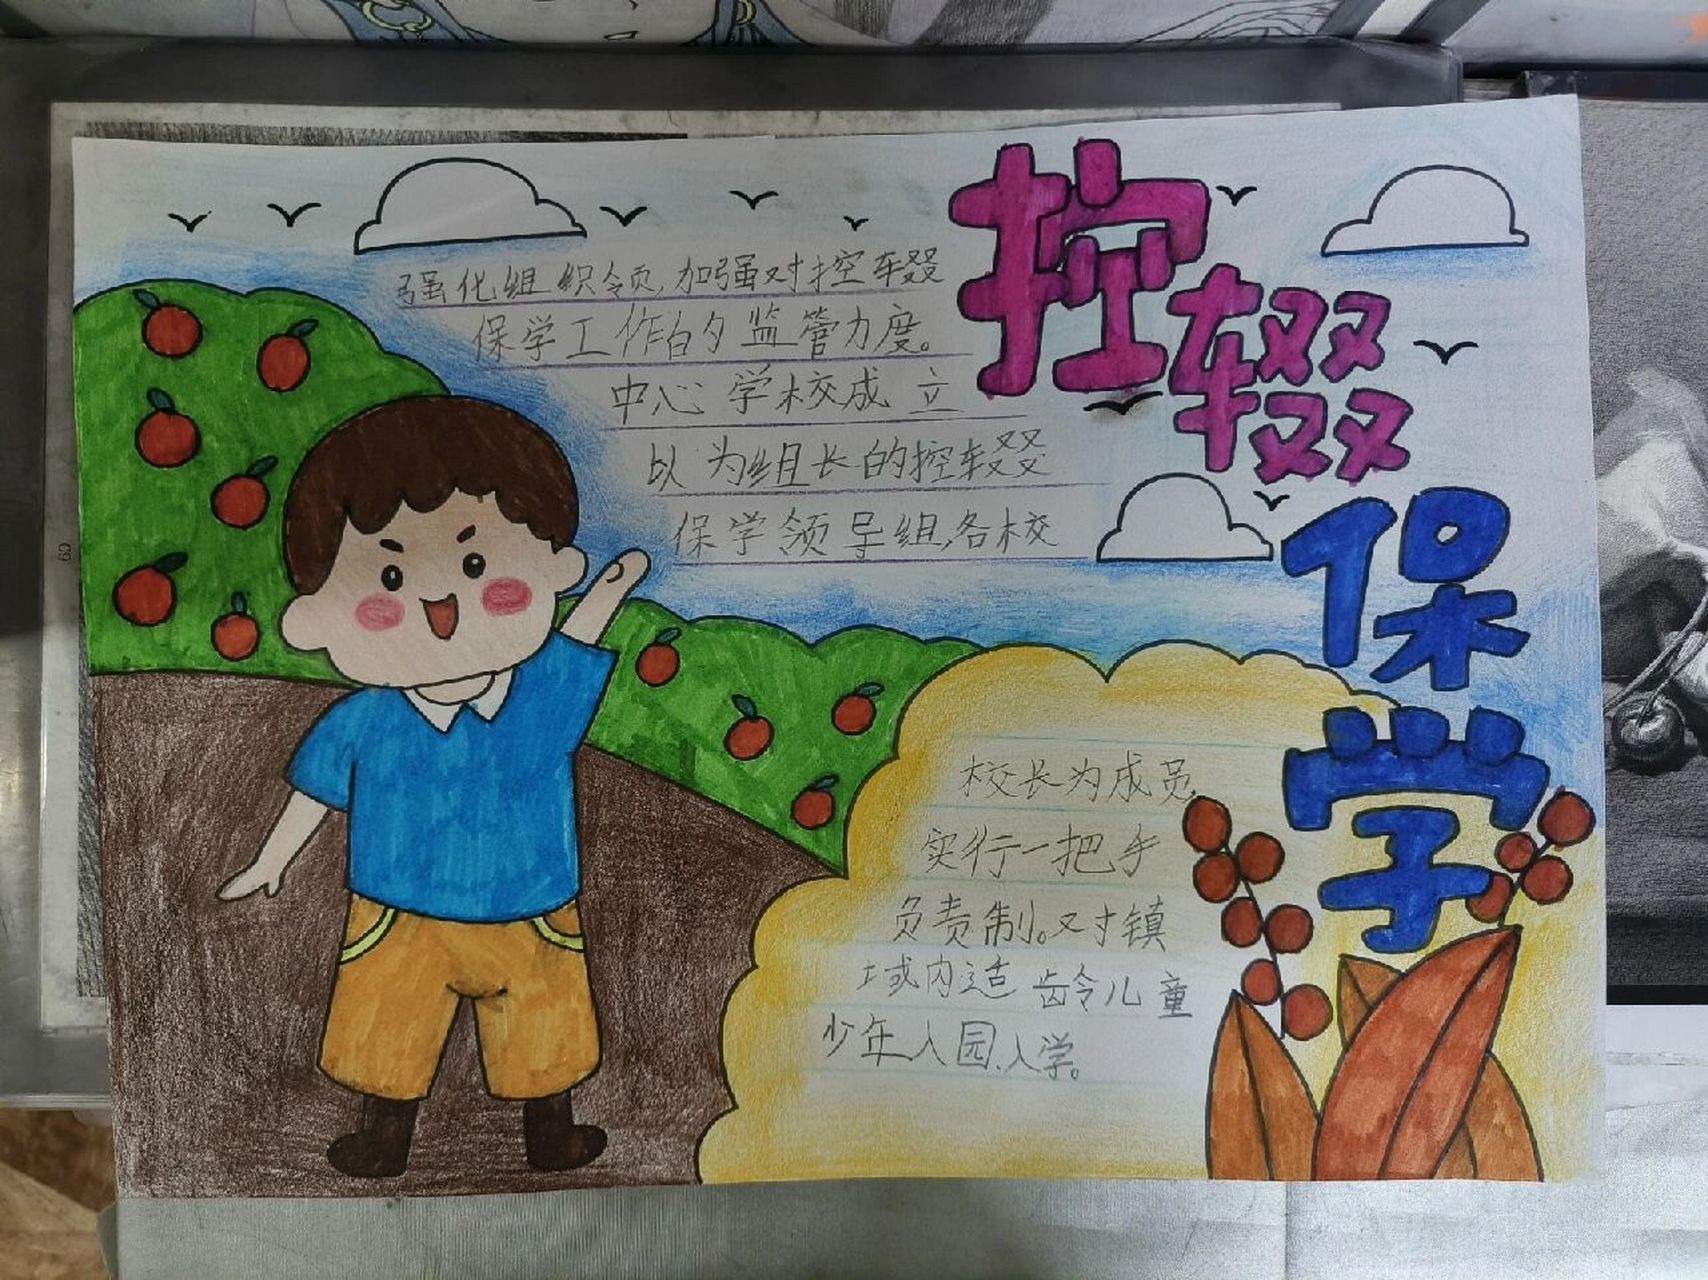 控辍
保
学
强化组织领,加强对控辍
保学工作的监管力度。
中心学校成立
以为组长的控辍
保学领导组,各校
校长为成员
实行一把手
负责制。对镇
域内适龄儿童
少年入园、入学。